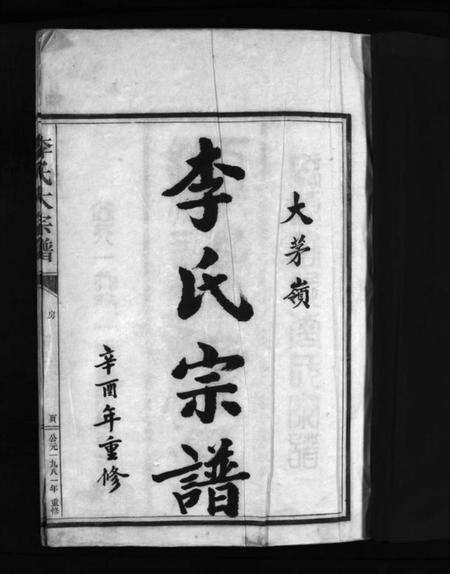 大茅嶺
李氏宗譜
辛酉年重修
李氏大宗譜
房
頁
公元一九八一年重修